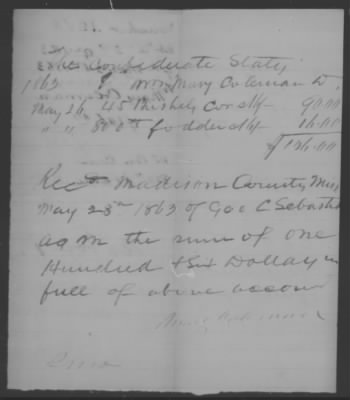 The Confederate States
1863 To Mrs Mary Coleman Dr
May 26 45 Bushels Corn $2 90.00
" " 800 lb fodder $2 16.00
$106.00
Recd Madison County Miss
May 28th 1863 of Geo C Sebasti
an the sum of one
Hundred & Six Dollars in
full of above account
Mary Coleman